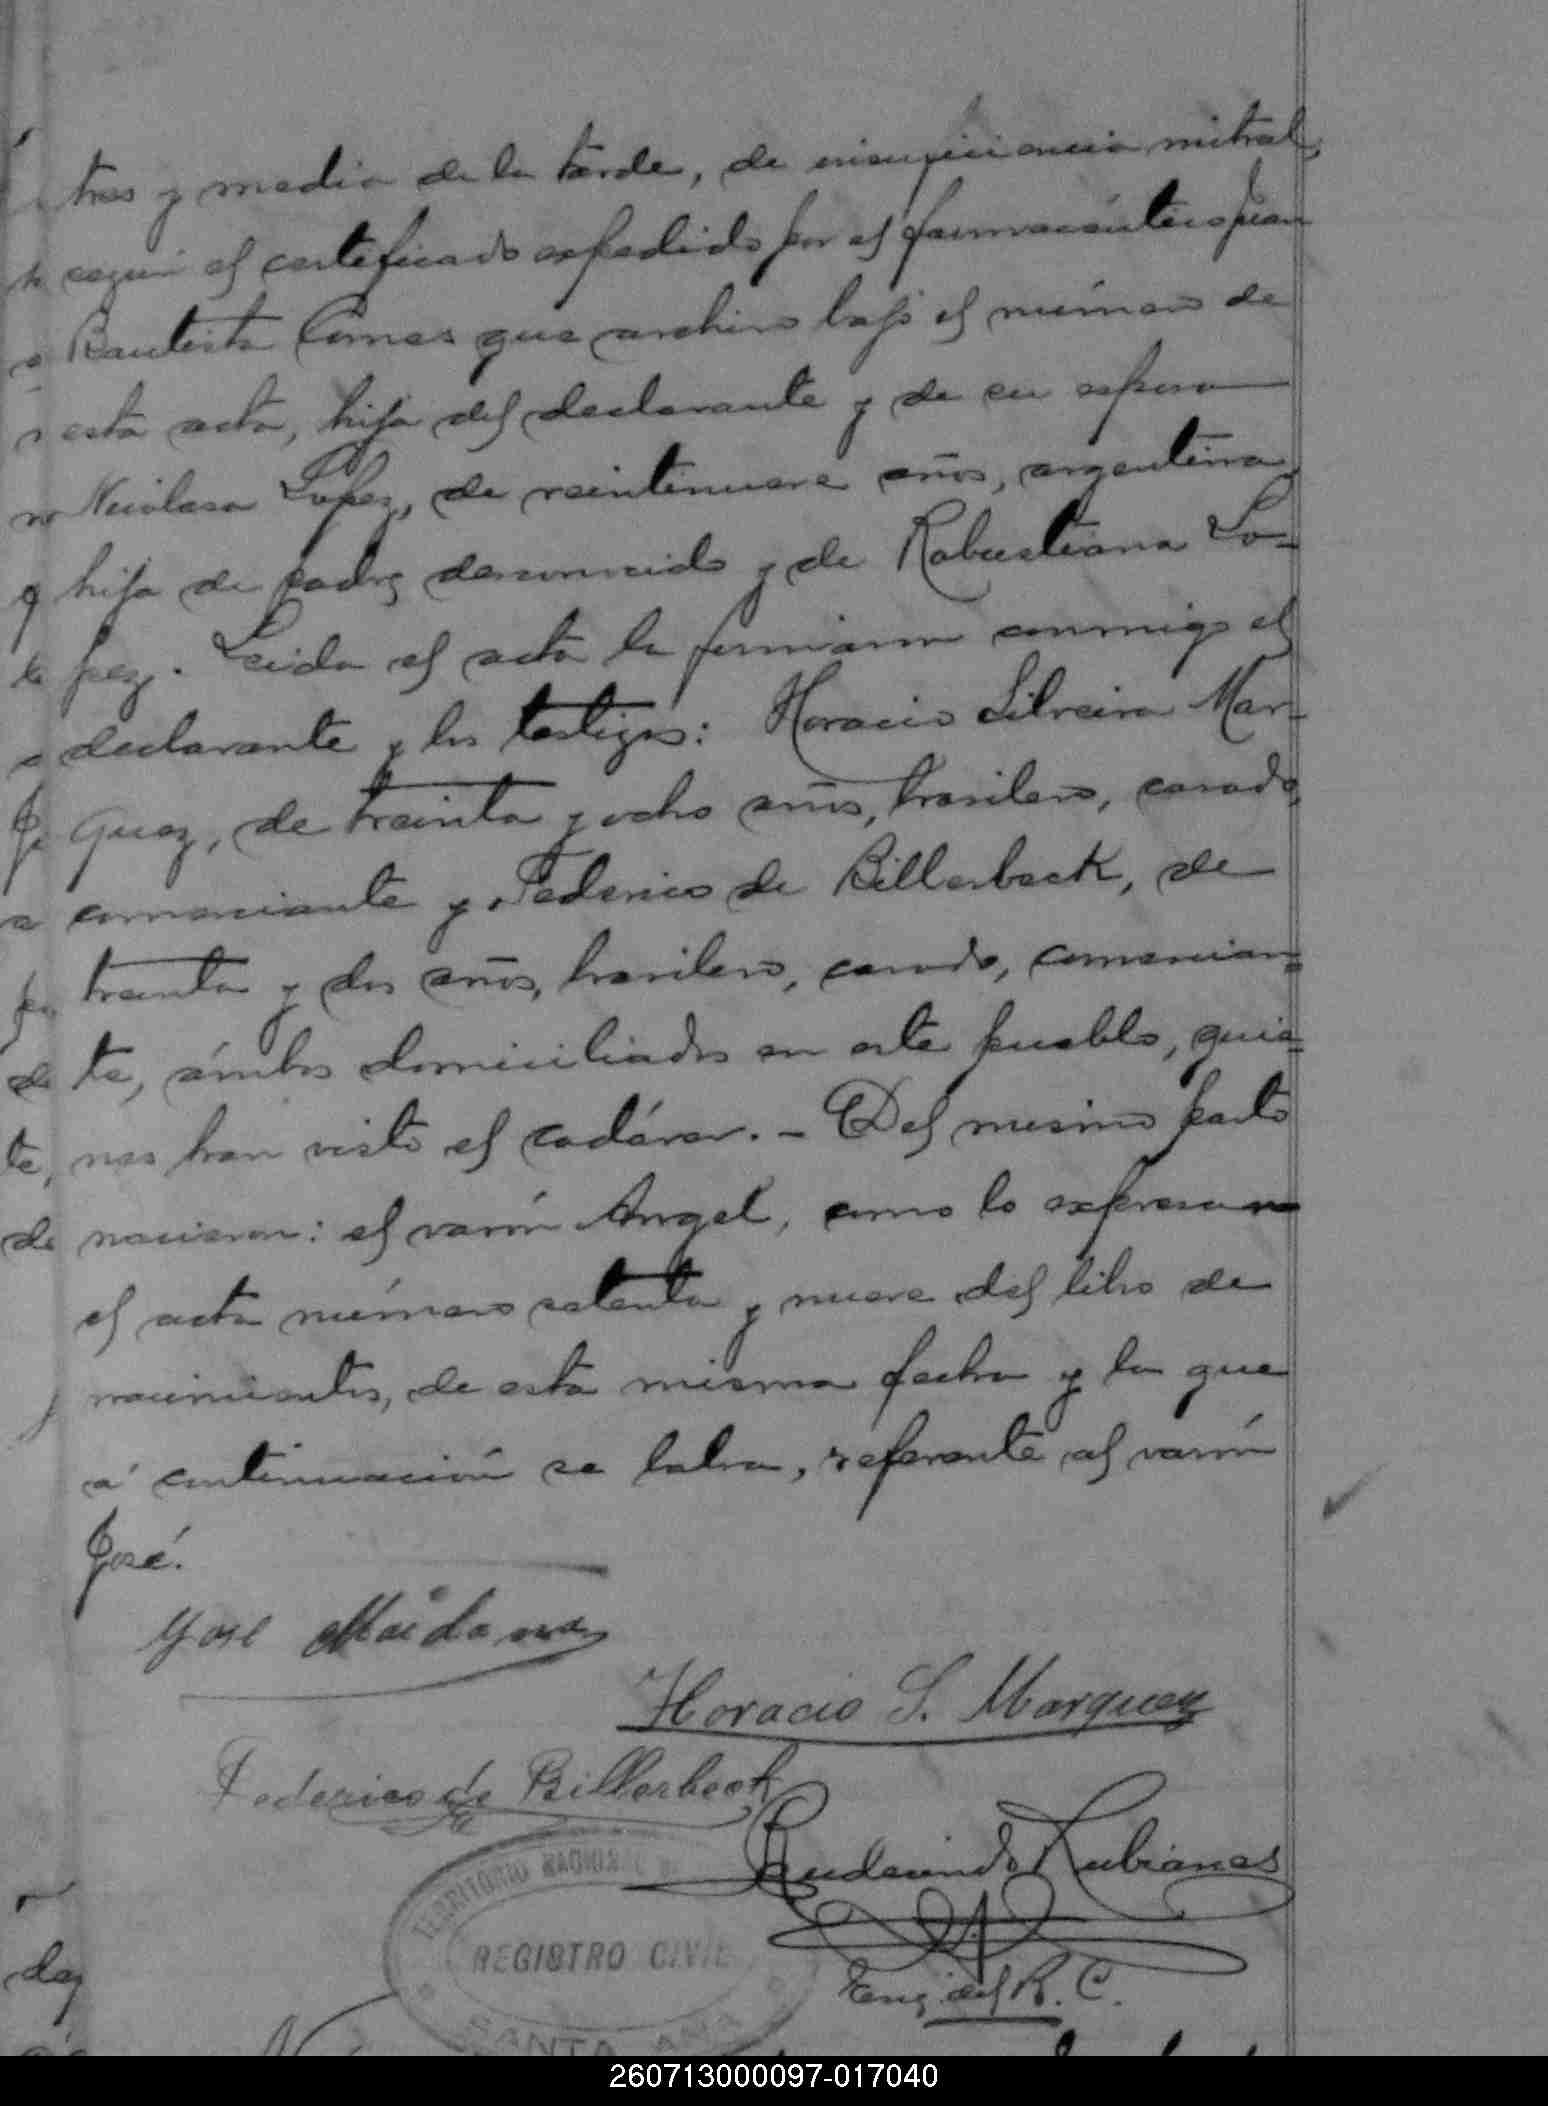 tres y media de la tarde, de insuficiencia mitral,
segun el certificado expedido por el farmacéutico Juan
Bautista Comas que archivo bajo el número de
esta acta, hija del declarante y de su esposa
Nicolasa Lopez, de veintinueve años, argentina,
hija de padre desconocido y de Robustiana Lo=
pez. Leida el acta la firmaron conmigo el
declarante y los testigos: Horacio Silveira Mar-
quez, de treinta y ocho años, brasilero, casado,
comerciante y Federico de Billerbeck, de
treinta y dos años, brasilero, casado, comercian=
te, ámbos domiciliados en este pueblo, quie=
nes han visto el cadáver. - Del mismo parto
nacieron: el varón Angel, como lo expresa
el acta número setenta y nueve del libro de
nacimientos, de esta misma fecha y la que
á continuación se labra, referente al varón
José.
José Maidana
Horacio S. Marquez
Federico de Billerbeck
Rudecindo Rubianes
Enc. del R. C.
TERRITORIO NACIONAL
REGISTRO CIVIL
SANTA ANA
260713000097-017040